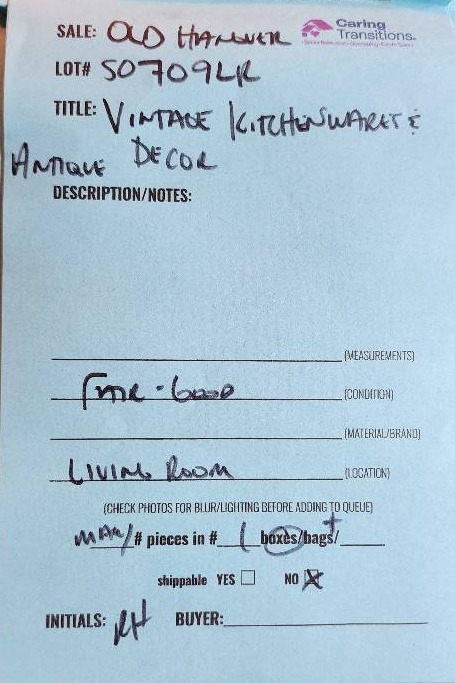 SALE: OLD HANOVER
Caring Transitions.
LOT# S0709LR
TITLE: VINTAGE KITCHENWARES &
ANTIQUE DECOR
DESCRIPTION/NOTES:
(MEASUREMENTS)
FAIR - GOOD (CONDITION)
(MATERIAL/BRAND)
LIVING ROOM (LOCATION)
(CHECK PHOTOS FOR BLUR/LIGHTING BEFORE ADDING TO QUEUE)
MANY # pieces in # 1 boxes/bags/
shippable YES NO X
INITIALS: RH BUYER: